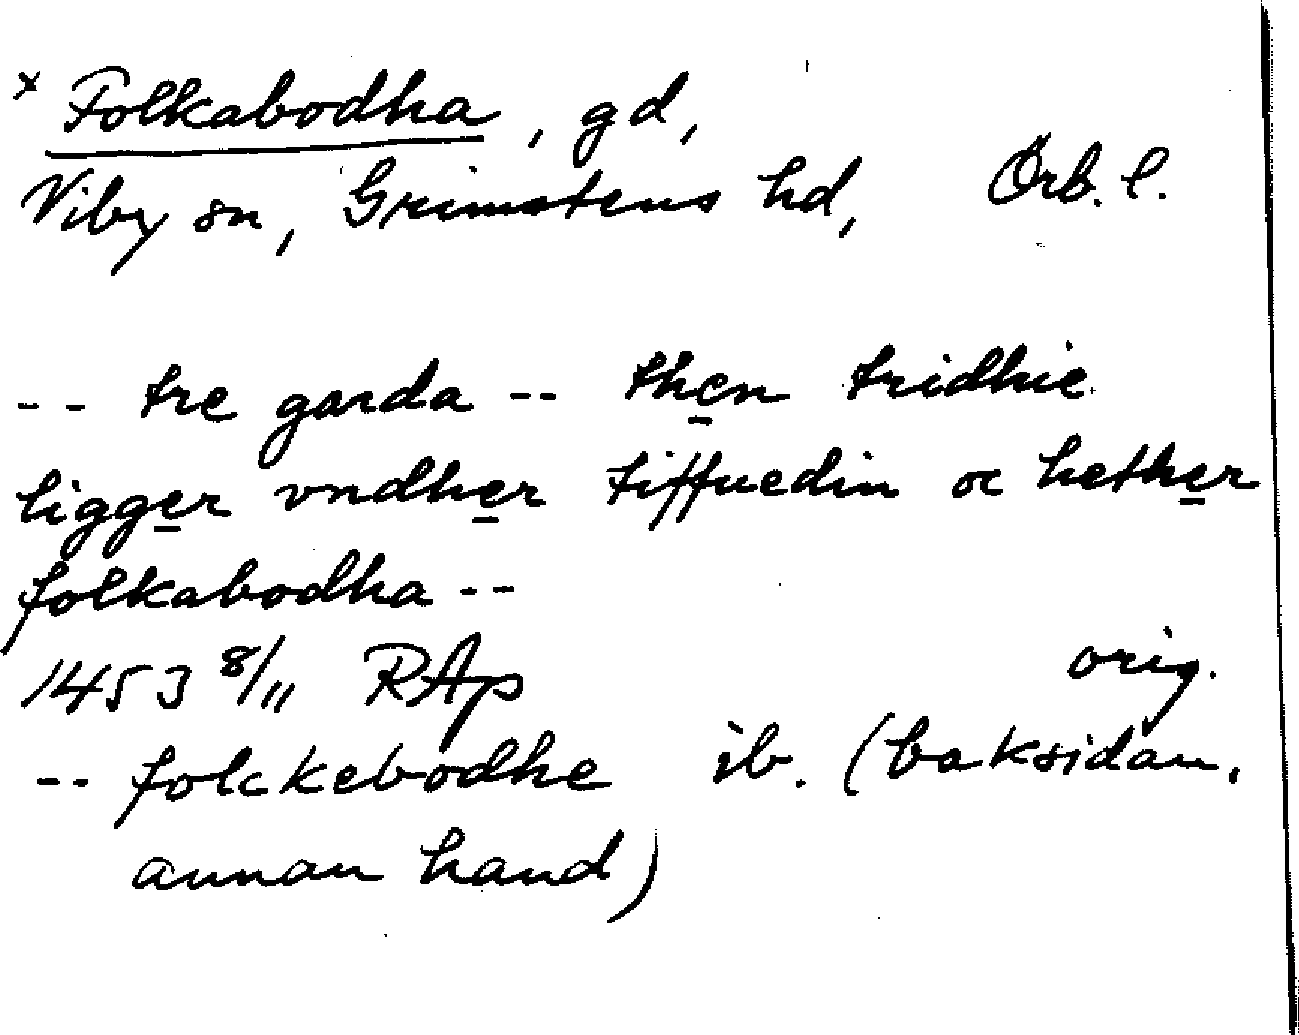 x Folkabodha, gd,
Viby sn, Grimstens hd, Örb. l.
-- tre garda -- then tridhie
ligger vndher tiffuedin oc hether
folkabodha --
1453 8/11 RAp orig.
-- folckebodhe ib. (baksidan,
annan hand)